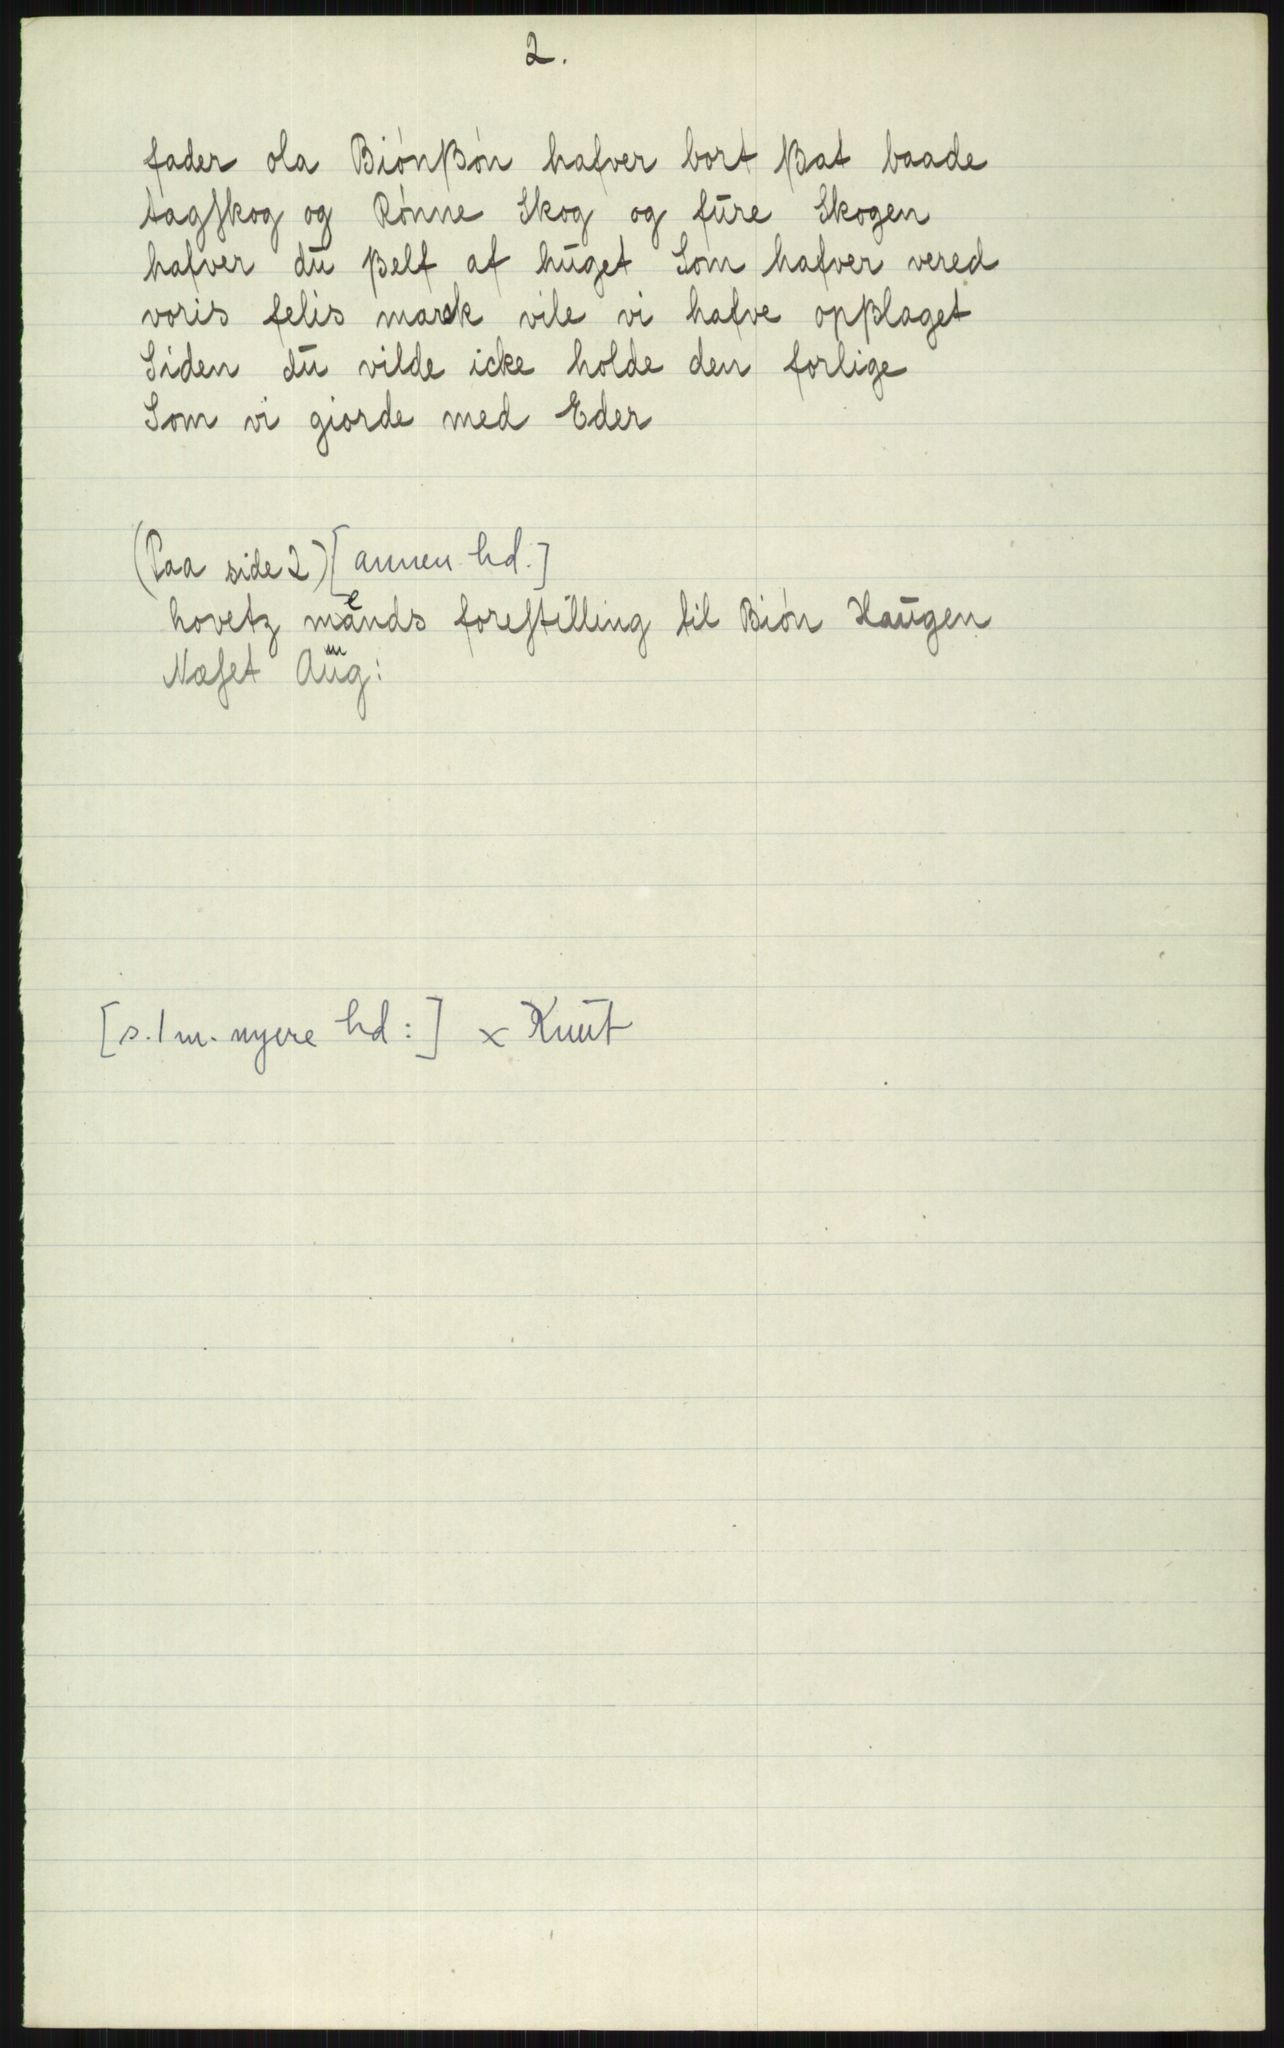 2.
fader ola Biónßón hafver bort ßat baade
tagskog og Rónne Skog og fūre Skogen
hafver dū ßelf af hūget Som hafver vered
voris felis marck vile vi hafve opßlaget
Siden dū vilde icke holde den forlige
Som vi giorde med Eder
(Paa side 2) [annen hd.]
hovetz mands forestilling til Bión Haūgen
Neset Aūg:
[s. 1 m. nyere hd:] x Knūt